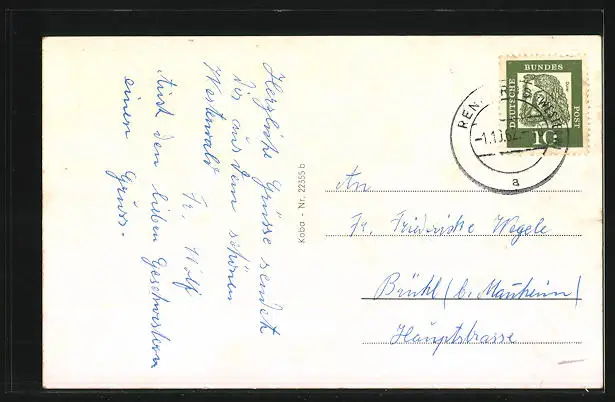 Herzliche Grüsse sendet
Dir aus dem schönen
Westerwald
Fr. Wolf
Auch den lieben Geschwistern
einen Gruss.
Koba - Nr. 22355 b
DEUTSCHE
BUNDES
POST
10
REN
-1.10.62.-
a
An
Fr. Friederike Wegele
Brühl (b. Manheim)
Hauptstrasse